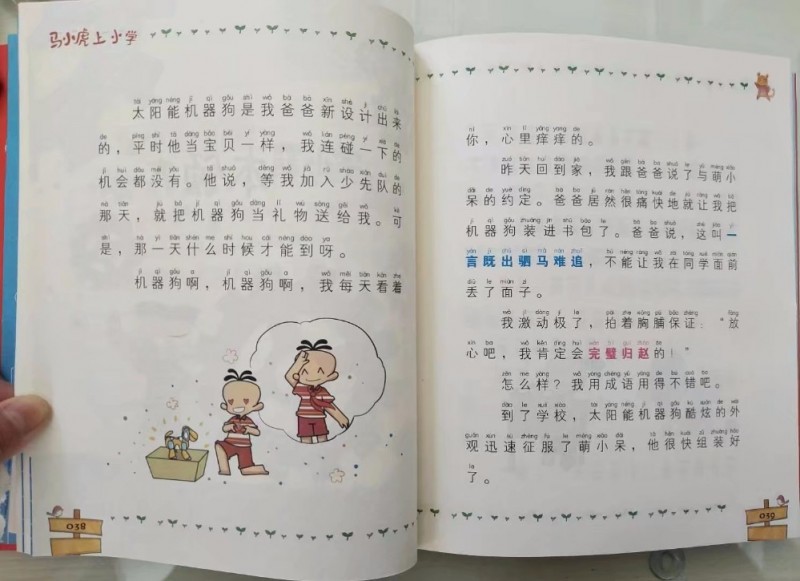 马小虎上小学
太阳能机器狗是我爸爸新设计出来
的，平时他当宝贝一样，我连碰一下的
机会都没有。他说，等我加入少先队的
那天，就把机器狗当礼物送给我。可
是，那一天什么时候才能到呀。
机器狗啊，机器狗啊，我每天看着
038
你，心里痒痒的。
昨天回到家，我跟爸爸说了与萌小
呆的约定。爸爸居然很痛快地就让我把
机器狗装进书包了。爸爸说，这叫一
言既出驷马难追，不能让我在同学面前
丢了面子。
我激动极了，拍着胸脯保证：“放
心吧，我肯定会完璧归赵的！”
怎么样？我用成语用得不错吧。
到了学校，太阳能机器狗酷炫的外
观迅速征服了萌小呆，他很快组装好
了。
039